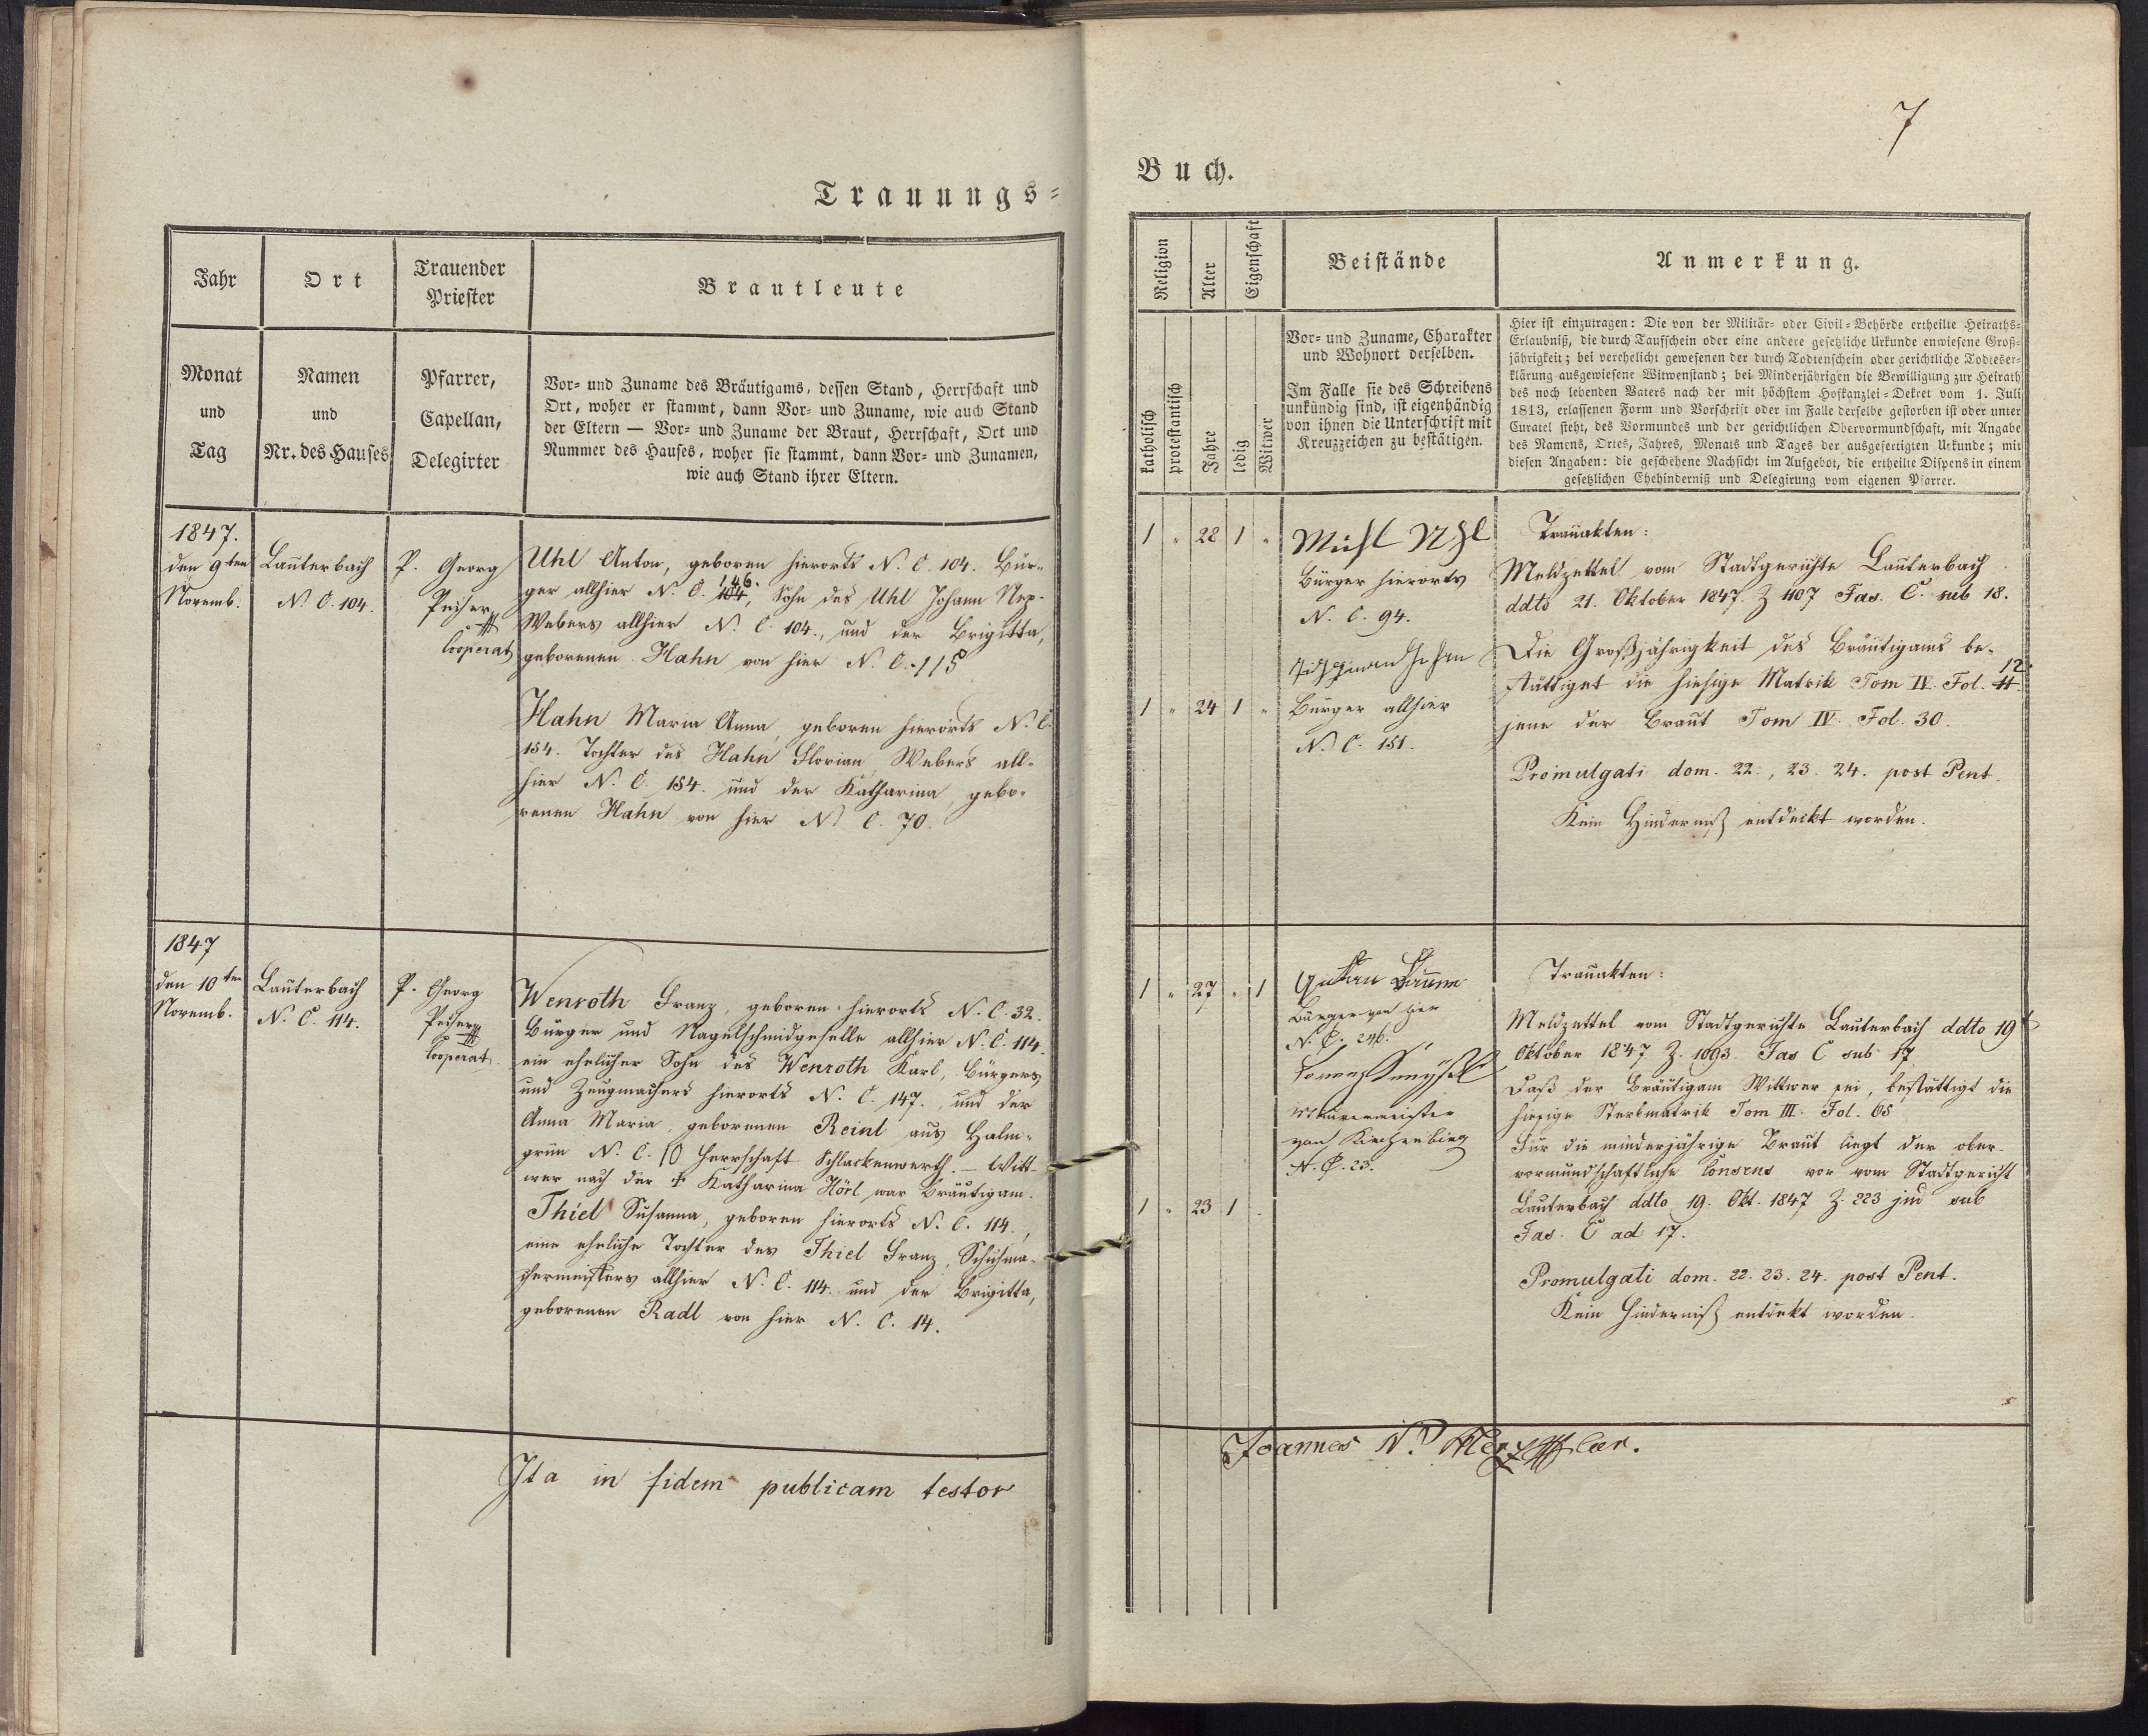 Trauungs=
Jahr
Ort
Trauender
Priester
Brautleute
Monat
und
Tag
Namen
und
Nr. des Hauses
Pfarrer,
Capellan,
Delegirter
Vor- und Zuname des Bräutigams, dessen Stand, Herrschaft und
Ort, woher er stammt, dann Vor- und Zuname, wie auch Stand
der Eltern — Vor- und Zuname der Braut, Herrschaft, Ort und
Nummer des Hauses, woher sie stammt, dann Vor- und Zunamen,
wie auch Stand ihrer Eltern.
1847.
den 9ten
Novemb.
Lauterbach
N. C. 104.
P. Georg
Peiser
Cooperat
Uhl Anton, geboren hierorts N. C. 104. Bür-
ger allhier N. C. 104, 146. Sohn des Uhl Johann Nep.
Webers allhier N. C. 104., und der Brigitta,
geborenen Hahn von hier N. C. 115
Hahn Maria Anna, geboren hierorts N. C.
154. Tochter des Hahn Florian, Webers all-
hier N. C. 154. und der Katharina, gebo-
renen Hahn von hier N. C. 70.
1847
den 10ten
Novemb.
Lauterbach
N. C. 114.
P. Georg
Peiser
Cooperat.
Wenroth Franz, geboren hierorts N. C. 32.
Bürger und Nagelschmidgeselle allhier N. C. 114.
ein ehelicher Sohn des Wenroth Karl, Bürgers
und Zeugmachers hierorts N. C. 147., und der
Anna Maria, geborenen Reinl aus Halm-
grün N. C. 10 Herrschaft Schlackenwerth. – Witt-
wer nach der † Katharina Hörl war Bräutigam.
Thiel Susanna, geboren hierorts N. C. 114.,
eine eheliche Tochter des Thiel Franz, Schuhma-
chermeisters allhier N. C. 114. und der Brigitta,
geborenen Radl von hier N. C. 14.
Ita in fidem publicam testor
7
Buch.
Religion
Alter
Eigenschaft
Beistände
Anmerkung.
katholisch
protestantisch
Jahre
ledig
Witwer
Vor- und Zuname, Charakter
und Wohnort derselben.
Im Falle sie des Schreibens
unkündig sind, ist eigenhändig
von ihnen die Unterschrift mit
Kreuzzeichen zu bestätigen.
Hier ist einzutragen: Die von der Militär- oder Civil-Behörde ertheilte Heiraths-
Erlaubniß, die durch Taufschein oder eine andere gesetzliche Urkunde erwiesene Groß-
jährigkeit; bei verehelicht gewesenen der durch Todtenschein oder gerichtliche Todeser-
klärung ausgewiesene Witwenstand; bei Minderjährigen die Bewilligung zur Heirath
des noch lebenden Vaters nach der mit höchstem Hofkanzlei-Dekret vom 1. Juli
1813, erlassenen Form und Vorschrift oder im Falle derselbe gestorben ist oder unter
Curatel steht, des Vormundes und der gerichtlichen Obervormundschaft, mit Angabe
des Namens, Ortes, Jahres, Monats und Tages der ausgefertigten Urkunde; mit
diesen Angaben: die geschehene Nachsicht im Aufgebot, die ertheilte Dispens in einem
gesetzlichen Ehehinderniß und Delegirung vom eigenen Pfarrer.
1 " 22 1 "
Uhl
Bürger hierorts
N. C. 94.
Johann
1 " 24 1 "
Bürger allhier
N. C. 151.
Trauakten:
Meldzettel vom Stadtgerichte Lauterbach
ddto 21. Oktober 1847. Z 1107 Fas. C. sub 18.
Die Großjährigkeit des Bräutigams be-
stättiget die hiesige Matrik Tom IV. Fol. 11. 12.
jene der Braut Tom IV. Fol. 30.
Promulgati dom. 22., 23. 24. post Pent.
Kein Hinderniß entdeckt worden.
1 " 27 " 1
Bürger von hier
N. C. 246.
Maurermeister
von
N. C. 23.
1 " 23 1
Trauakten:
Meldzettel vom Stadtgerichte Lauterbach ddto 19t
Oktober 1847 Z. 1093. Fas C sub 17
Daß der Bräutigam Wittwer sei, bestättigt die
hiesige Sterbmatrik Tom III. Fol. 65
Für die minderjährige Braut liegt der ober-
vormundschaftliche Consens vor vom Stadtgericht
Lauterbach ddto 19. Okt. 1847 Z. 223 jud sub
Fas. C ad 17.
Promulgati dom. 22. 23. 24. post Pent.
Kein Hinderniß entdekt worden.
Joannes N.